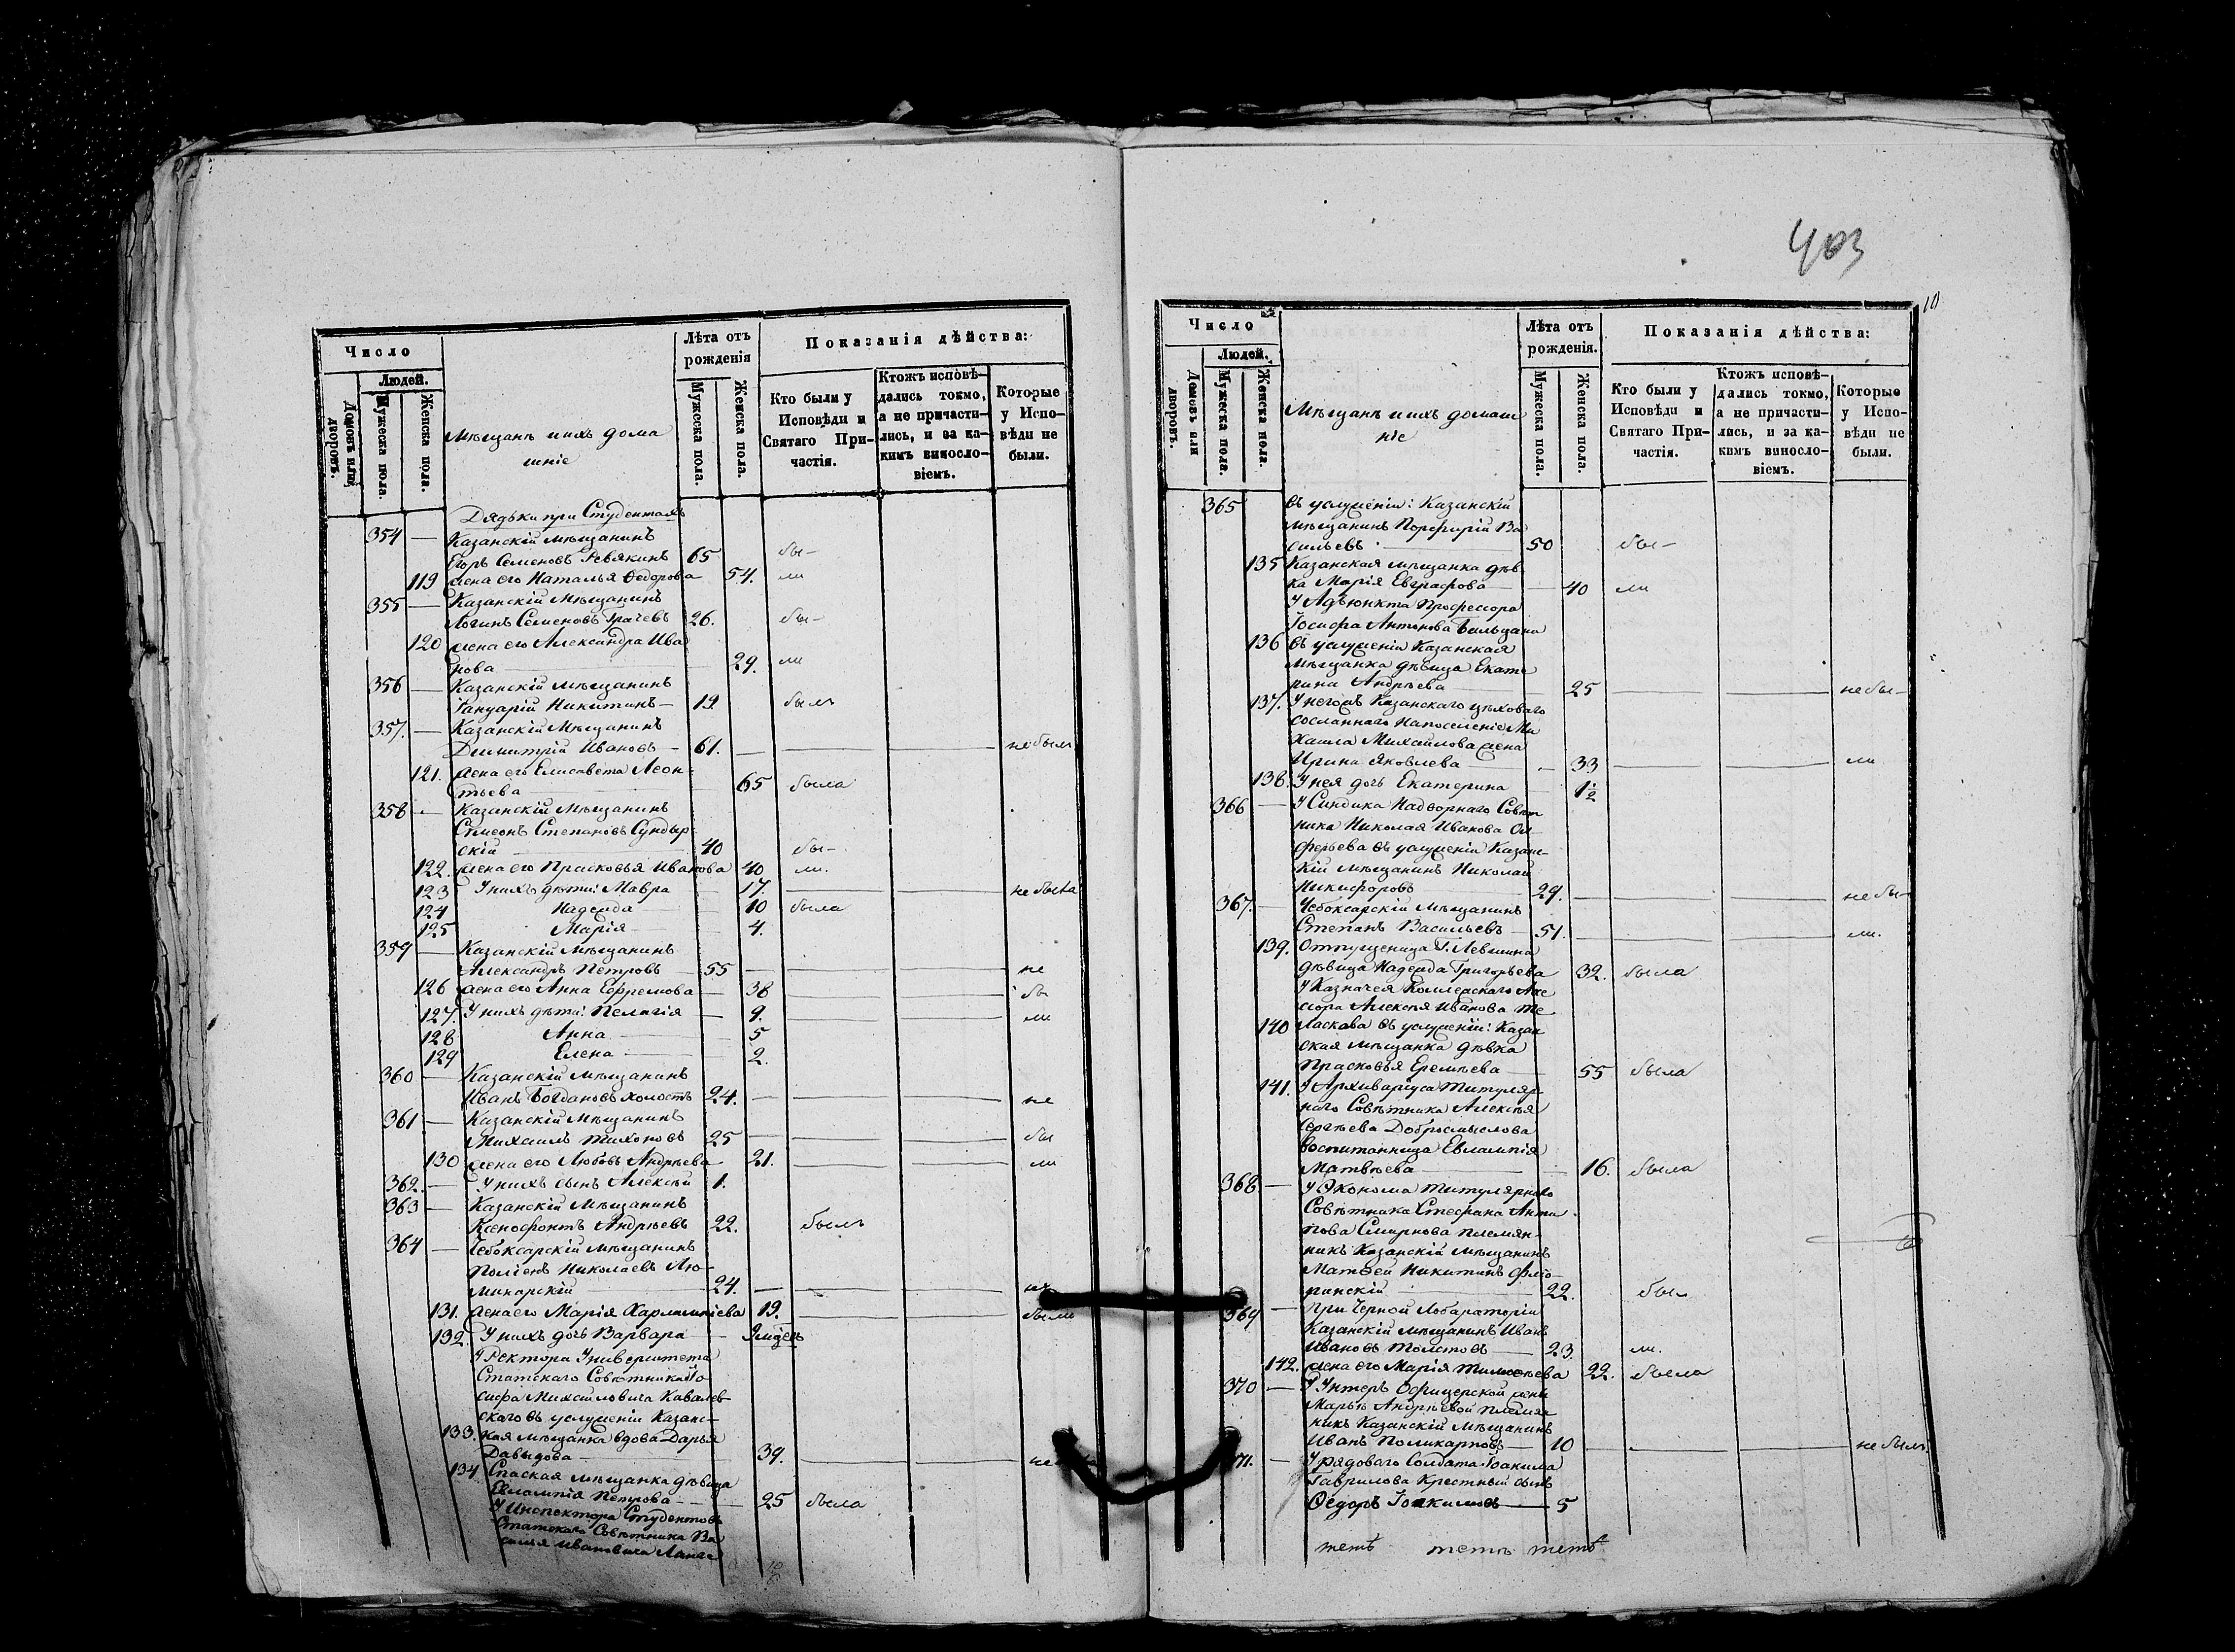 403
10
Число
Людей.
Домовъ или дворовъ.
Мужеска пола.
Женска пола.
Мѣщанъ и ихъ дома
шніе
Лѣта отъ рожденія
Мужеска пола.
Женска пола.
Показанія дѣйства:
Кто были у Исповѣди и Святаго При-частія.
Ктожъ исповѣ-дались токмо, а не причасти-лись, и за ка-кимъ винословіемъ.
Которые у Испо-вѣди не были.
Дядьки при Студентахъ
354 — Казанскій мѣщанинъ
Егоръ Семеновъ Ревякинъ 65 бы-
119 жена его Наталья Федорова 54. ли
355 — Казанскій Мѣщанинъ
Логинъ Семеновъ Грачевъ 26. бы-
120 жена его Александра Ива
нова 29. ли
356 — Казанскій мѣщанинъ
Іануарій Никитинъ — 19 былъ
357. — Казанскій Мѣщанинъ
Димитрій Ивановъ — 61. не былъ
121. жена его Елисавета Леон-
тьева 65 была
358 — Казанскій Мѣщанинъ
Симеонъ Степановъ Сундыр-
скій 40 бы-
122. жена его Прасковья Иванова 40 ли.
123 У нихъ дѣти: Мавра 17. не была
124 Надежда 10 была
125 Марія 4.
359 — Казанскій Мѣщанинъ
Александръ Петровъ 55 не
126 жена его Анна Ефремова 38 бы
127. У нихъ дѣти: Пелагія 9. ли
128 Анна 5
129 Елена 2.
360 — Казанскій мѣщанинъ
Иванъ Богдановъ холостъ 24. не
361 — Казанскій Мѣщанинъ
Михаилъ Тихоновъ 25 бы
130 жена его Любовь Андреева 21. ли
362. — У нихъ сынъ Алексѣй 1.
363 — Казанскій Мѣщанинъ
Ксенофонтъ Андреевъ 22. былъ
364 — Чебоксарскій мѣщанинъ
Николаевъ Лю-
минарскій 24. не
131. жена его Марія Харлампіева 19. были
132. У нихъ дочь Варвара
У Ректора Университета
Статскаго Совѣтника Іо-
сифа Михайловича Ковалев-
скаго въ услуженіи Казанс-
133. кая мѣщанка вдова Дарья
Давыдова 39. не
134. Спаская мѣщанка дѣвица
Евлампія Петрова 25 была
У Инспектора Студентовъ
Статскаго Совѣтника Ва
силья Ивановича Ланге
Число
Людей.
Домовъ или дворовъ.
Мужеска пола.
Женска пола.
Мѣщанъ и ихъ домаш
ніе
Лѣта отъ рожденія.
Мужеска пола.
Женска пола.
Показанія дѣйства:
Кто были у Исповѣди и Святаго При-частія.
Ктожъ исповѣ-дались токмо, а не причасти-лись, и за ка-кимъ винословіемъ.
Которые у Испо-вѣди не были.
365 въ услуженіи: Казанскій
мѣщанинъ Порфирій Ва
сильевъ 50 бы-
135 Казанская мѣщанка дѣв
ка Марія Евграфова 40 ли
У Адъюнкта Профессора
Іосифа Антонова Больцани
136 въ услуженіи Казанская
мѣщанка дѣвица Екате
рина Андреева 25 не бы-
137. У него жъ Казанскаго цѣховаго
сосланнаго на поселеніе Ми
хаила Михайлова жена
Ирина Яковлева 33 ли
138. У нея дочь Екатерина 1½
366 — У Синдика Надворнаго Совѣт
ника Николая Иванова
въ услуженіи Казанс-
кій мѣщанинъ Николай
Никифоровъ 29. не бы-
367. — Чебоксарскій мѣщанинъ
Степанъ Васильевъ 51. ли.
139. Отпущеница Г. Левшина
дѣвица Надежда Григорьева 32. была
У Казначея Коллежскаго Асе
сора Алексѣя Иванова Те
140 ласкова въ услуженіи: Казан
ская мѣщанка дѣвка
Прасковья Еремѣева 55 была
141. У Архиваріуса Титуляр-
наго Совѣтника Алексѣя
Сергѣева Добросмыслова
воспитанница Евлампія
Матвѣева 16. была
368 — У Эконома Титулярнаго
Совѣтника Стефана Анти
пова Смирнова племян-
никъ Казанскій мѣщанинъ
Матвей Никитинъ Фло-
ринскій 22. бы-
369 — При Черной Лобараторіи
Казанскій мѣщанинъ Иванъ
Ивановъ Толстовъ 23. ли.
142. жена его Марія Тимофеева 22. была
370 — У Унтеръ Офицерской жены
Марьи Андреевой племян
никъ Казанскій Мѣщанинъ
Иванъ Поликарповъ 10 не былъ
371. — У рядоваго Солдата Іоакима
Гаврилова Крестный сынъ
Федоръ Іоакимовъ 5